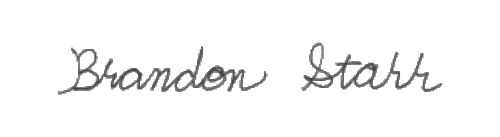 Brandon Starr